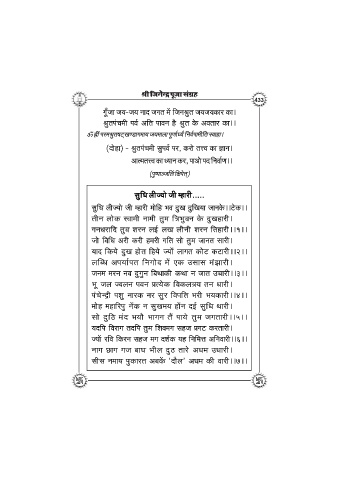 श्री जिनेन्द्र पूजा संग्रह
433
गूँजा जय-जय नाद जगत में जिनश्रुत जयजयकार का।
श्रुतपंचमी पर्व अति पावन है श्रुत के अवतार का।।
ॐ ह्रीं परमश्रुतषट्खण्डागमाय जयमाला पूर्णार्घ्यं निर्वपामीति स्वाहा।
(दोहा) - श्रुतपंचमी सुपर्व पर, करो तत्त्व का ज्ञान।
आत्मतत्त्व का ध्यान कर, पाओ पद निर्वाण।।
(पुष्पाञ्जलिं क्षिपेत्)
सुधि लीज्यो जी म्हारी.....
सुधि लीज्यो जी म्हारी मोहि भव दुख दुखिया जानके।।टेक।।
तीन लोक स्वामी नामी तुम त्रिभुवन के दुखहारी।
गनधरादि तुव शरन लई लख लीनी शरन तिहारी।।१।।
जो बिधि अरी करी हमरी गति सो तुम जानत सारी।
याद किये दुख होत हिये ज्यों लागत कोट कटारी।।२।।
लब्धि अपर्यापत निगोद में एक उसास मंझारी।
जनम मरन नव दुगुन बिथाकी कथा न जात उचारी।।३।।
भू जल ज्वलन पवन प्रत्येक बिकलत्रय तन धारी।
पंचेन्द्री पशु नारक नर सुर विपति भरी भयकारी।।४।।
मोह महारिपु नेंक न सुखमय होंन दई सुधि थारी।
सो दुठि मंद भयौ भागन तैं पाये तुम जगतारी।।५।।
यदपि विराग तदपि तुम शिवमग सहज प्रगट करतारी।
ज्यों रवि किरन सहज मग दर्शक यह निमित्त अनिवारी।।६।।
नाग छाग गज बाघ भील दुठ तारे अधम उधारी।
सीस नमाय पुकारत अबकें 'दौल' अधम की वारी।।७।।